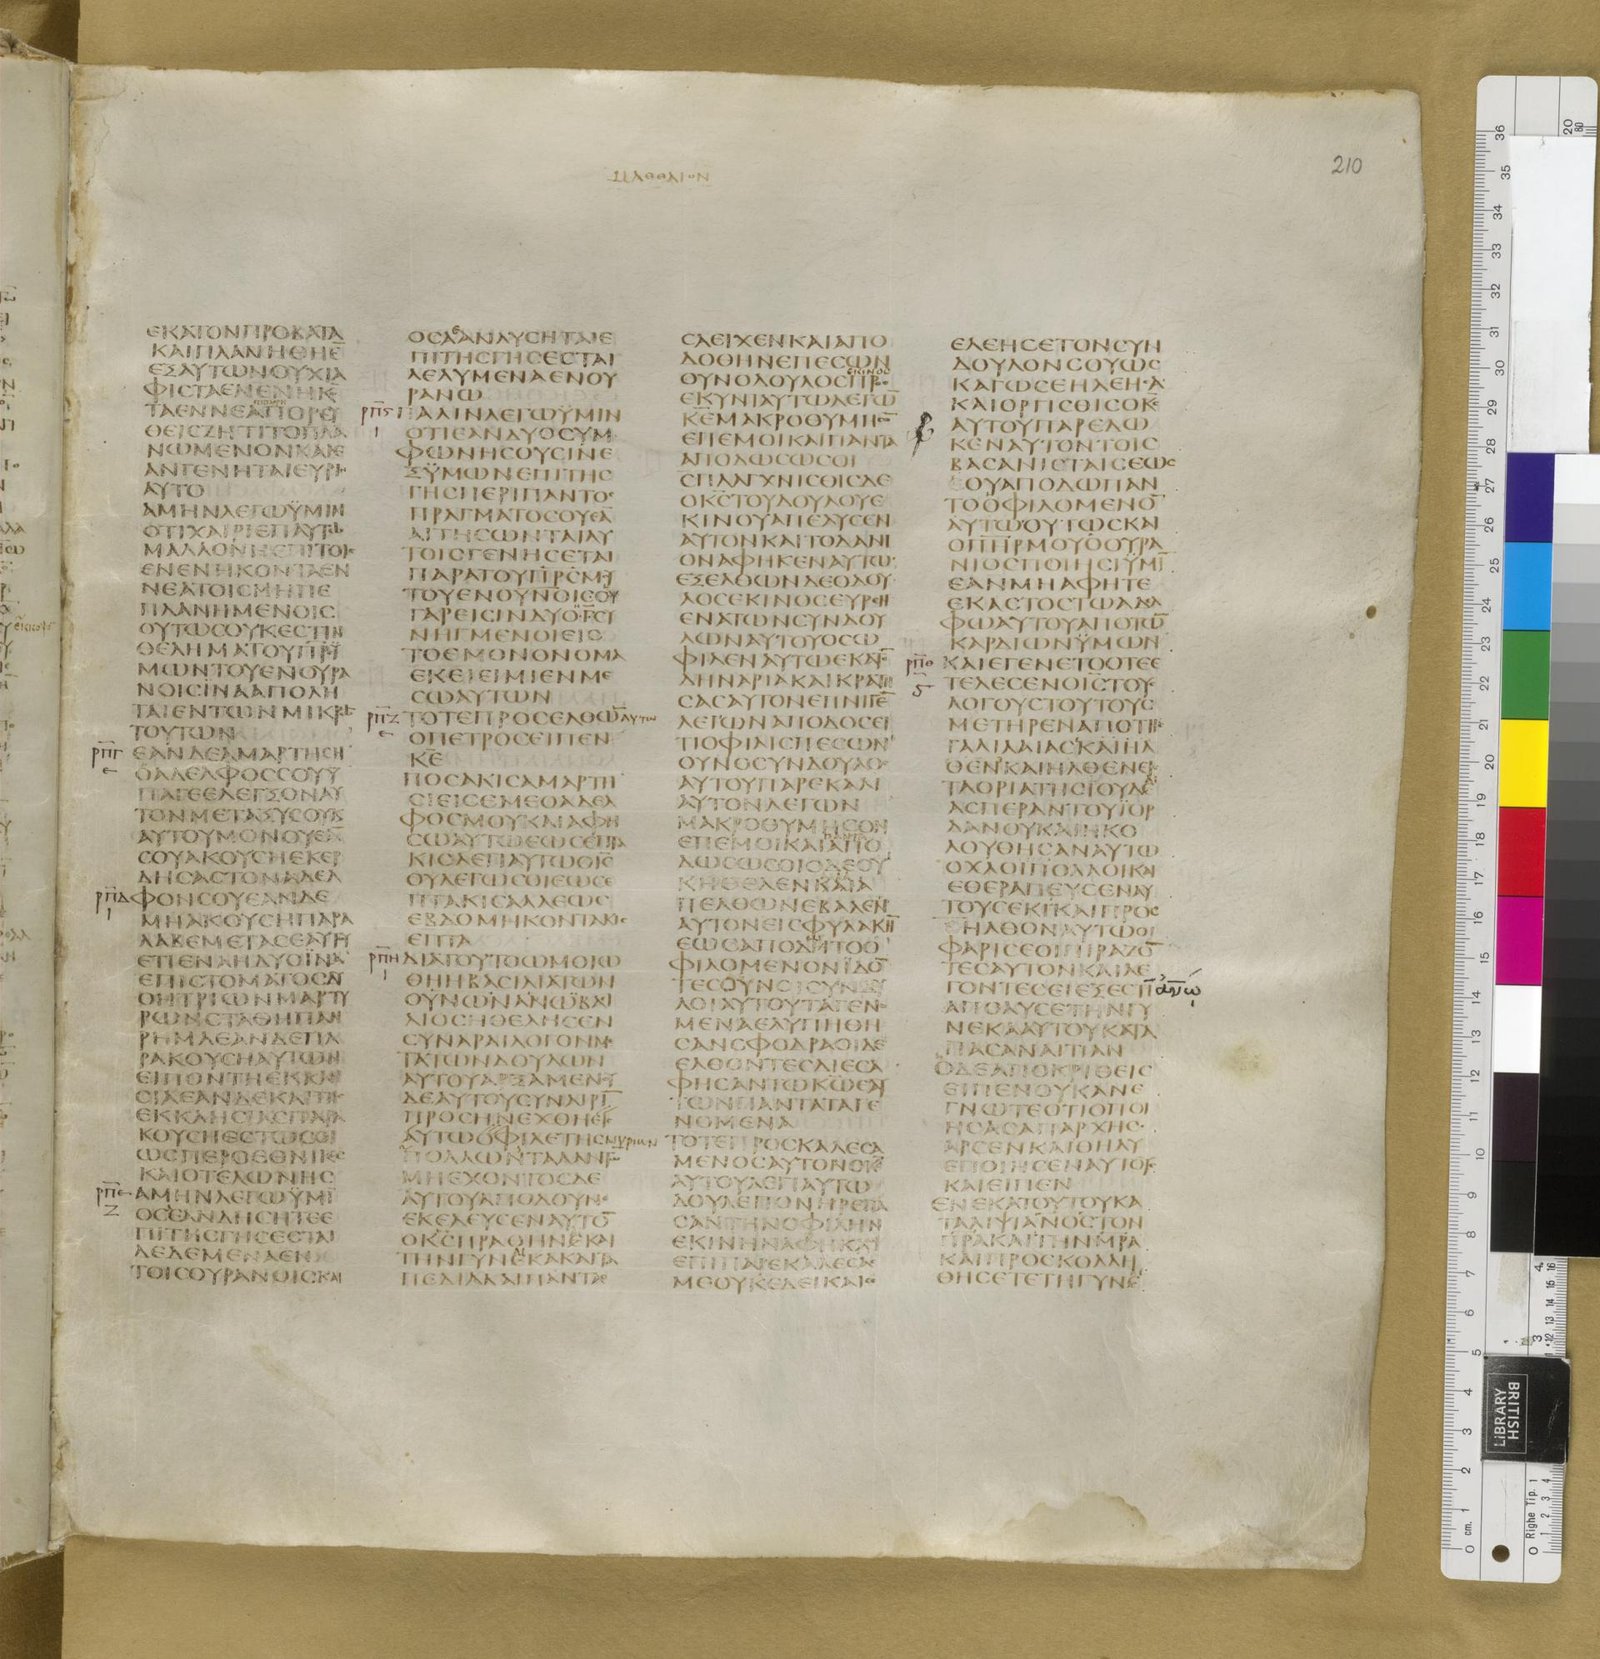 ΜΑΘΘΑΙΟΝ
210
ΕΚΑΤΟΝΠΡΟΒΑΤΑ
ΚΑΙΠΛΑΝΗΘΗΕ̅
ΕΞΑΥΤΩΝΟΥΧΙΑ
ΦΙΣΤΑΕΝΕΝΗΚ̅
ΤΑΕΝΝΕΑΠΟΡΕΥ
ΘΕΙΣΖΗΤΙΤΟΠΛΑ
ΝΩΜΕΝΟΝΚΑΙΕ
ΑΝΓΕΝΗΤΑΙΕΥΡΙ̅
ΑΥΤΟ
ΑΜΗΝΛΕΓΩΫΜΙΝ
ΟΤΙΧΑΙΡΙΕΠΑΥΤΩ
ΜΑΛΛΟΝΗΕΠΙΤΟΙΣ
ΕΝΕΝΗΚΟΝΤΑΕΝ
ΝΕΑΤΟΙΣΜΗΠΕ
ΠΛΑΝΗΜΕΝΟΙΣ
ΟΥΤΩΣΟΥΚΕΣΤΙΝ
ΘΕΛΗΜΑΤΟΥΠΡ̅Σ̅Ϋ
ΜΩΝΤΟΥΕΝΟΥΡΑ
ΝΟΙΣΪΝΑΑΠΟΛΗ
ΤΑΙΕΝΤΩΝΜΙΚΡΩ̅
ΤΟΥΤΩΝ
ρπγ ΕΑΝΔΕΑΜΑΡΤΗΣΗ
ΟΑΔΕΛΦΟΣΣΟΥΫ
ΠΑΓΕΕΛΕΓΞΟΝΑΥ
ΤΟΝΜΕΤΑΞΥΣΟΥΚ
ΑΥΤΟΥΜΟΝΟΥΕΑ̅
ΣΟΥΑΚΟΥΣΗΕΚΕΡ
ΔΗΣΑΣΤΟΝΑΔΕΛ
ρπδ ΦΟΝΣΟΥΕΑΝΔΕ
ΜΗΑΚΟΥΣΗΠΑΡΑ
ΛΑΒΕΜΕΤΑΣΕΑΥΤΥ
ΕΤΙΕΝΑΗΔΥΟΪΝΑ
ΕΠΙΣΤΟΜΑΤΟΣΔΥ
ΟΗΤΡΙΩΝΜΑΡΤΥ
ΡΩΝΣΤΑΘΗΠΑΝ
ΡΗΜΑΕΑΝΔΕΠΑ
ΡΑΚΟΥΣΗΑΥΤΩΝ
ΕΙΠΟΝΤΗΕΚΚΛΗ
ΣΙΑΕΑΝΔΕΚΑΙΤΗΣ
ΕΚΚΛΗΣΙΑΣΠΑΡΑ
ΚΟΥΣΗΕΣΤΩΣΟΙ
ΩΣΠΕΡΟΕΘΝΙΚΟΣ
ΚΑΙΟΤΕΛΩΝΗΣ
ρπε ΑΜΗΝΛΕΓΩΫΜΙ̅
Ζ ΟΣΑΕΑΝΔΗΣΗΤΕΕ
ΠΙΤΗΣΓΗΣΕΣΤΑΙ
ΔΕΔΕΜΕΝΑΕΝ
ΤΟΙΣΟΥΡΑΝΟΙΣΚΑΙ
ΟΣΑΕΑΝΛΥΣΗΤΑΙΕ
ΠΙΤΗΣΓΗΣΕΣΤΑΙ
ΛΕΛΥΜΕΝΑΕΝΟΥ
ΡΑΝΩ
ρπϛ ΠΑΛΙΝΛΕΓΩΫΜΙΝ
ΟΤΙΕΑΝΔΥΟΣΥΜ
ΦΩΝΗΣΟΥΣΙΝΕ
ΞΫΜΩΝΕΠΙΤΗΣ
ΓΗΣΠΕΡΙΠΑΝΤΟΣ
ΠΡΑΓΜΑΤΟΣΟΥΕΑ̅
ΑΙΤΗΣΩΝΤΑΙΑΥ
ΤΟΙΣΓΕΝΗΣΕΤΑΙ
ΠΑΡΑΤΟΥΠΡ̅Σ̅ΜΟΥ
ΤΟΥΕΝΟΥΝΟΙΣΟΥ
ΓΑΡΕΙΣΙΝΔΥΟΗΤΡΙΣ
ΝΗΓΜΕΝΟΙΕΙΣ
ΤΟΕΜΟΝΟΝΟΜΑ
ΕΚΕΙΕΙΜΙΕΝΜΕ
ΣΩΑΥΤΩΝ
ρπζ ΤΟΤΕΠΡΟΣΕΛΘΩ̅ ΑΥΤΩ
ΟΠΕΤΡΟΣΕΙΠΕΝ
Κ̅Ε̅
ΠΟΣΑΚΙΣΑΜΑΡΤΗ
ΣΙΕΙΣΕΜΕΟΑΔΕΛ
ΦΟΣΜΟΥΚΑΙΑΦΗ
ΣΩΑΥΤΩΕΩΣΕΠΤΑ
ΚΙΣΛΕΓΙΑΥΤΩΟΙΣ
ΟΥΛΕΓΩΣΟΙΕΩΣΕ
ΠΤΑΚΙΣΑΛΛΕΩΣ
ΕΒΔΟΜΗΚΟΝΤΑΚΙΣ
ΕΠΤΑ
ρπη ΔΙΑΤΟΥΤΟΩΜΟΙΩ
ΘΗΗΒΑΣΙΛΙΑΤΩΝ
ΟΥΝΩΝΑΝΩΒΑΣΙ
ΛΙΟΣΗΘΕΛΗΣΕΝ
ΣΥΝΑΡΑΙΛΟΓΟΝΜΕ
ΤΑΤΩΝΔΟΥΛΩΝ
ΑΥΤΟΥΑΡΞΑΜΕΝΟΥ
ΔΕΑΥΤΟΥΣΥΝΑΙΡΙ̅
ΠΡΟΣΗΝΕΧΘΗΕΙΣ
ΑΥΤΩΟΦΙΛΕΤΗΣΜΥΡΙΩΝ
ΠΟΛΛΩΝΤΑΛΑΝΤΩ̅
ΜΗΕΧΟΝΤΟΣΔΕ
ΑΥΤΟΥΑΠΟΔΟΥΝΑΙ
ΕΚΕΛΕΥΣΕΝΑΥΤΟ̅
ΟΚ̅Σ̅ΠΡΑΘΗΝΕΚΑΙ
ΤΗΝΓΥΝΕΚΑΚΑΙΤΑ
ΠΕΔΙΑΚΑΙΠΑΝΤΑΟ
ΣΑΕΙΧΕΝΚΑΙΑΠΟ
ΔΟΘΗΝΕΠΕΣΩΝ
ΟΥΝΟΔΟΥΛΟΣΕΚΙΝΟΣΠΡΟΣ
ΕΚΥΝΙΑΥΤΩΛΕΓΩ̅
Κ̅Ε̅ΜΑΚΡΟΘΥΜΗΣΟ̅
ΕΠΕΜΟΙΚΑΙΠΑΝΤΑ
ΑΠΟΔΩΣΩΣΟΙ
ΣΠΛΑΓΧΝΙΣΘΙΣΔΕ
ΟΚ̅Σ̅ΤΟΥΔΟΥΛΟΥΕ
ΚΙΝΟΥΑΠΕΛΥΣΕΝ
ΑΥΤΟΝΚΑΙΤΟΔΑΝΙ
ΟΝΑΦΗΚΕΝΑΥΤΩ
ΕΞΕΛΘΩΝΔΕΟΔΟΥ
ΛΟΣΕΚΙΝΟΣΕΥΡΕΝ
ΕΝΑΤΩΝΣΥΝΔΟΥ
ΛΩΝΑΥΤΟΥΟΣΩ
ΦΙΛΕΝΑΥΤΩΕΚΑΤΟ̅
ΔΗΝΑΡΙΑΚΑΙΚΡΑΤΗ
ΣΑΣΑΥΤΟΝΕΠΝΙΓΕ̅
ΛΕΓΩΝΑΠΟΔΟΣΕΙ
ΤΙΟΦΙΛΙΣΠΕΣΩΝ
ΟΥΝΟΣΥΝΔΟΥΛΟΣ
ΑΥΤΟΥΠΑΡΕΚΑΛΙ
ΑΥΤΟΝΛΕΓΩΝ
ΜΑΚΡΟΘΥΜΗΣΟΝ
ΕΠΕΜΟΙΚΑΙΠΑΝΤΑΑΠΟ
ΔΩΣΩΣΟΙΟΔΕΟΥ
ΚΗΘΕΛΕΝΚΑΙΑ
ΠΕΛΘΩΝΕΒΑΛΕΝ
ΑΥΤΟΝΕΙΣΦΥΛΑΚΗ̅
ΕΩΣΑΠΟΔΩΤΟΟ
ΦΙΛΟΜΕΝΟΝΪΔΟ̅
ΤΕΣΟΥΝΟΙΣΥΝΔΟΥ
ΛΟΙΑΥΤΟΥΤΑΓΕΝΟ
ΜΕΝΑΕΛΥΠΗΘΗ
ΣΑΝΣΦΟΔΡΑΟΙΔΕ
ΕΛΘΟΝΤΕΣΔΙΕΣΑ
ΦΗΣΑΝΤΩΚ̅Ω̅ΕΑΥ
ΤΩΝΠΑΝΤΑΤΑΓΕ
ΝΟΜΕΝΑ
ΤΟΤΕΠΡΟΣΚΑΛΕΣΑ
ΜΕΝΟΣΑΥΤΟΝΟΚ̅Σ̅
ΑΥΤΟΥΛΕΓΙΑΥΤΩ
ΔΟΥΛΕΠΟΝΗΡΕΠΑ
ΣΑΝΤΗΝΟΦΙΛΗΝ
ΕΚΙΝΗΝΑΦΗΚΑΣΙ
ΕΠΙΠΑΡΕΚΑΛΕΣΑΣ
ΜΕΟΥΚΕΔΕΙΚΑΙΣΕ
ΕΛΕΗΣΕΤΟΝΣΥΝ
ΔΟΥΛΟΝΣΟΥΩΣ
ΚΑΓΩΣΕΗΛΕΗΣΑ
ΚΑΙΟΡΓΙΣΘΙΣΟΚ̅Σ̅
ΑΥΤΟΥΠΑΡΕΔΩ
ΚΕΝΑΥΤΟΝΤΟΙΣ
ΒΑΣΑΝΙΣΤΑΙΣΕΩΣ
ΟΥΑΠΟΔΩΠΑΝ
ΤΟΟΦΙΛΟΜΕΝΟ̅
ΑΥΤΩΟΥΤΩΣΚΑΙ
ΟΠ̅Η̅Ρ̅ΜΟΥΟΟΥΡΑ
ΝΙΟΣΠΟΙΗΣΙΫΜΙ̅
ΕΑΝΜΗΑΦΗΤΕ
ΕΚΑΣΤΟΣΤΩΑΔΕΛ
ΦΩΑΥΤΟΥΑΠΟΤΩ̅
ΚΑΡΔΙΩΝΫΜΩΝ
ρπθ ΚΑΙΕΓΕΝΕΤΟΟΤΕΕ
ϛ ΤΕΛΕΣΕΝΟΙΣΤΟΥΣ
ΛΟΓΟΥΣΤΟΥΤΟΥΣ
ΜΕΤΗΡΕΝΑΠΟΤΗΣ
ΓΑΛΙΛΑΙΑΣΚΑΙΗΛ
ΘΕΝΚΑΙΗΛΘΕΝΕΙΣ
ΤΑΟΡΙΑΤΗΣΙΟΥΔΑΙ
ΑΣΠΕΡΑΝΤΟΥΪΟΡ
ΔΑΝΟΥΚΑΙΗΚΟ
ΛΟΥΘΗΣΑΝΑΥΤΩ
ΟΧΛΟΙΠΟΛΛΟΙΚΑΙ
ΕΘΕΡΑΠΕΥΣΕΝΑΥ
ΤΟΥΣΕΚΙΚΑΙΠΡΟΣ
ΗΛΘΟΝΑΥΤΩΟΙ
ΦΑΡΙΣΕΟΙΠΙΡΑΖΟ̅
ΤΕΣΑΥΤΟΝΚΑΙΛΕ
ΓΟΝΤΕΣΕΙΕΞΕΣΤΙ̅
ΑΠΟΛΥΣΕΤΗΝΓΥ
ΝΕΚΑΑΥΤΟΥΚΑΤΑ
ΠΑΣΑΝΑΙΤΙΑΝ
ΟΔΕΑΠΟΚΡΙΘΕΙΣ
ΕΙΠΕΝΟΥΚΑΝΕ
ΓΝΩΤΕΟΤΙΟΠΟΙ
ΗΣΑΣΑΠΑΡΧΗΣ
ΑΡΣΕΝΚΑΙΘΗΛΥ
ΕΠΟΙΗΣΕΝΑΥΤΟΥΣ
ΚΑΙΕΙΠΕΝ
ΕΝΕΚΑΤΟΥΤΟΥΚΑ
ΤΑΛΙΨΙΑΝΟΣΤΟΝ
ΠΡΑΚΑΙΤΗΝΜΡΑ
ΚΑΙΠΡΟΣΚΟΛΛΗ
ΘΗΣΕΤΕΤΗΓΥΝΕ
BRITISH
LIBRARY
0 cm. 1
0 Righe Tip. 1